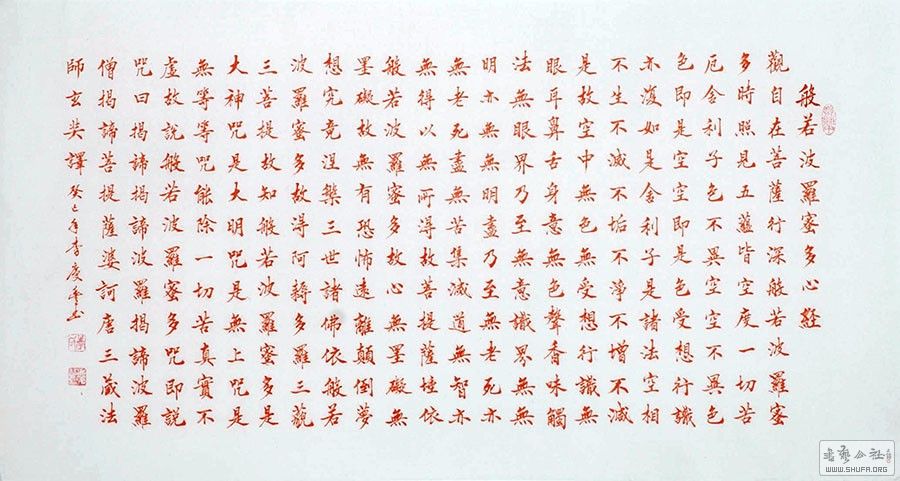 般若波羅蜜多心經
觀自在菩薩行深般若波羅蜜
多時照見五蘊皆空度一切苦
厄舍利子色不異空空不異色
色即是空空即是色受想行識
亦復如是舍利子是諸法空相
不生不滅不垢不淨不增不減
是故空中無色無受想行識無
眼耳鼻舌身意無色聲香味觸
法無眼界乃至無意識界無無
明亦無無明盡乃至無老死亦
無老死盡無苦集滅道無智亦
無得以無所得故菩提薩埵依
般若波羅蜜多故心無罣礙無
罣礙故無有恐怖遠離顛倒夢
想究竟涅槃三世諸佛依般若
波羅蜜多故得阿耨多羅三藐
三菩提故知般若波羅蜜多是
大神咒是大明咒是無上咒是
無等等咒能除一切苦真實不
虛故說般若波羅蜜多咒即說
咒曰揭諦揭諦波羅揭諦波羅
僧揭諦菩提薩婆訶唐三藏法
師玄奘譯 癸巳年李慶書
書藝公社
WWW.SHUFA.ORG